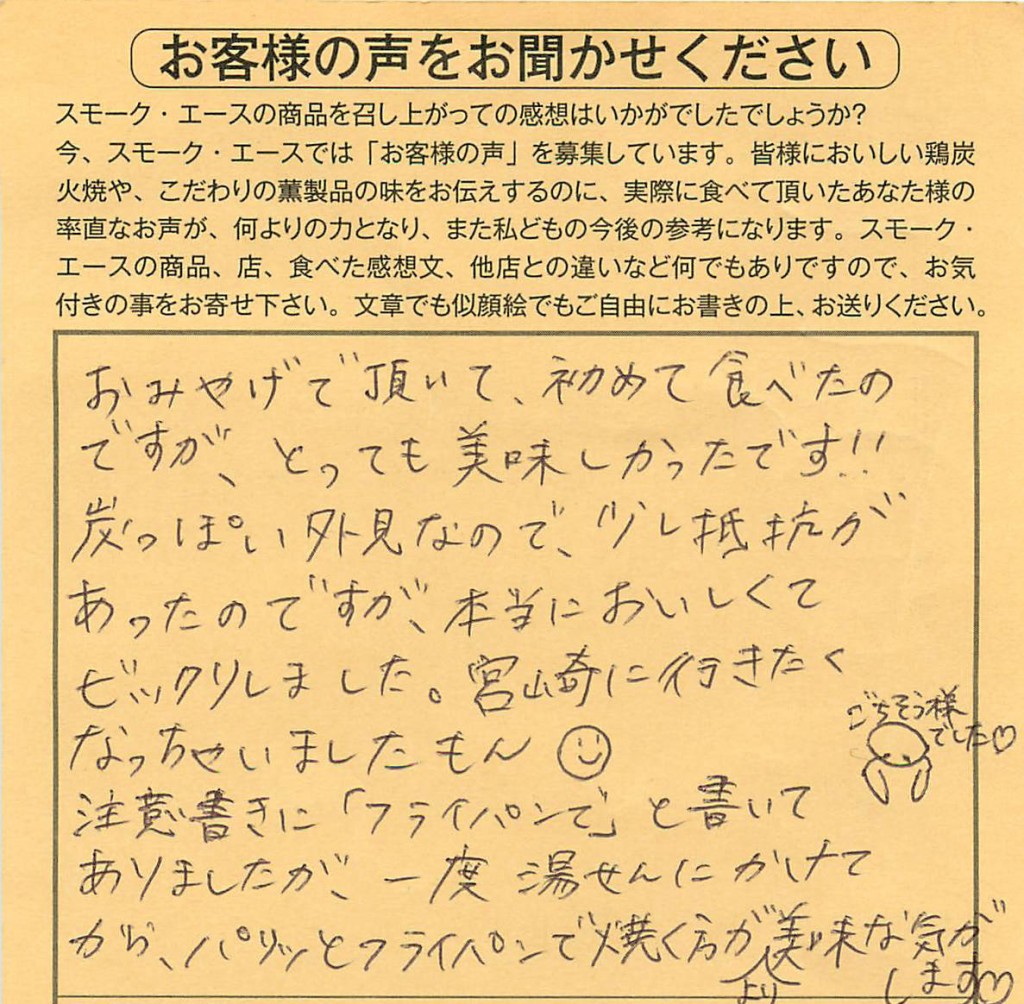 お客様の声をお聞かせください
スモーク・エースの商品を召し上がっての感想はいかがでしたでしょうか?
今、スモーク・エースでは「お客様の声」を募集しています。皆様においしい鶏炭
火焼や、こだわりの薫製品の味をお伝えするのに、実際に食べて頂いたあなた様の
率直なお声が、何よりの力となり、また私どもの今後の参考になります。スモーク・
エースの商品、店、食べた感想文、他店との違いなど何でもありですので、お気
付きの事をお寄せ下さい。文章でも似顔絵でもご自由にお書きの上、お送りください。
おみやげで頂いて、初めて食べたの
ですが、とっても美味しかったです!!
炭っぽい外見なので、少し抵抗が
あったのですが、本当においしくて
ビックリしました。宮崎に行きたく
なっちゃいましたもん
ごちそう様
でした♡
注意書きに「フライパンで」と書いて
ありましたが、一度湯せんにかけて
から、パリッとフライパンで焼く方がより美味な気が
します♡